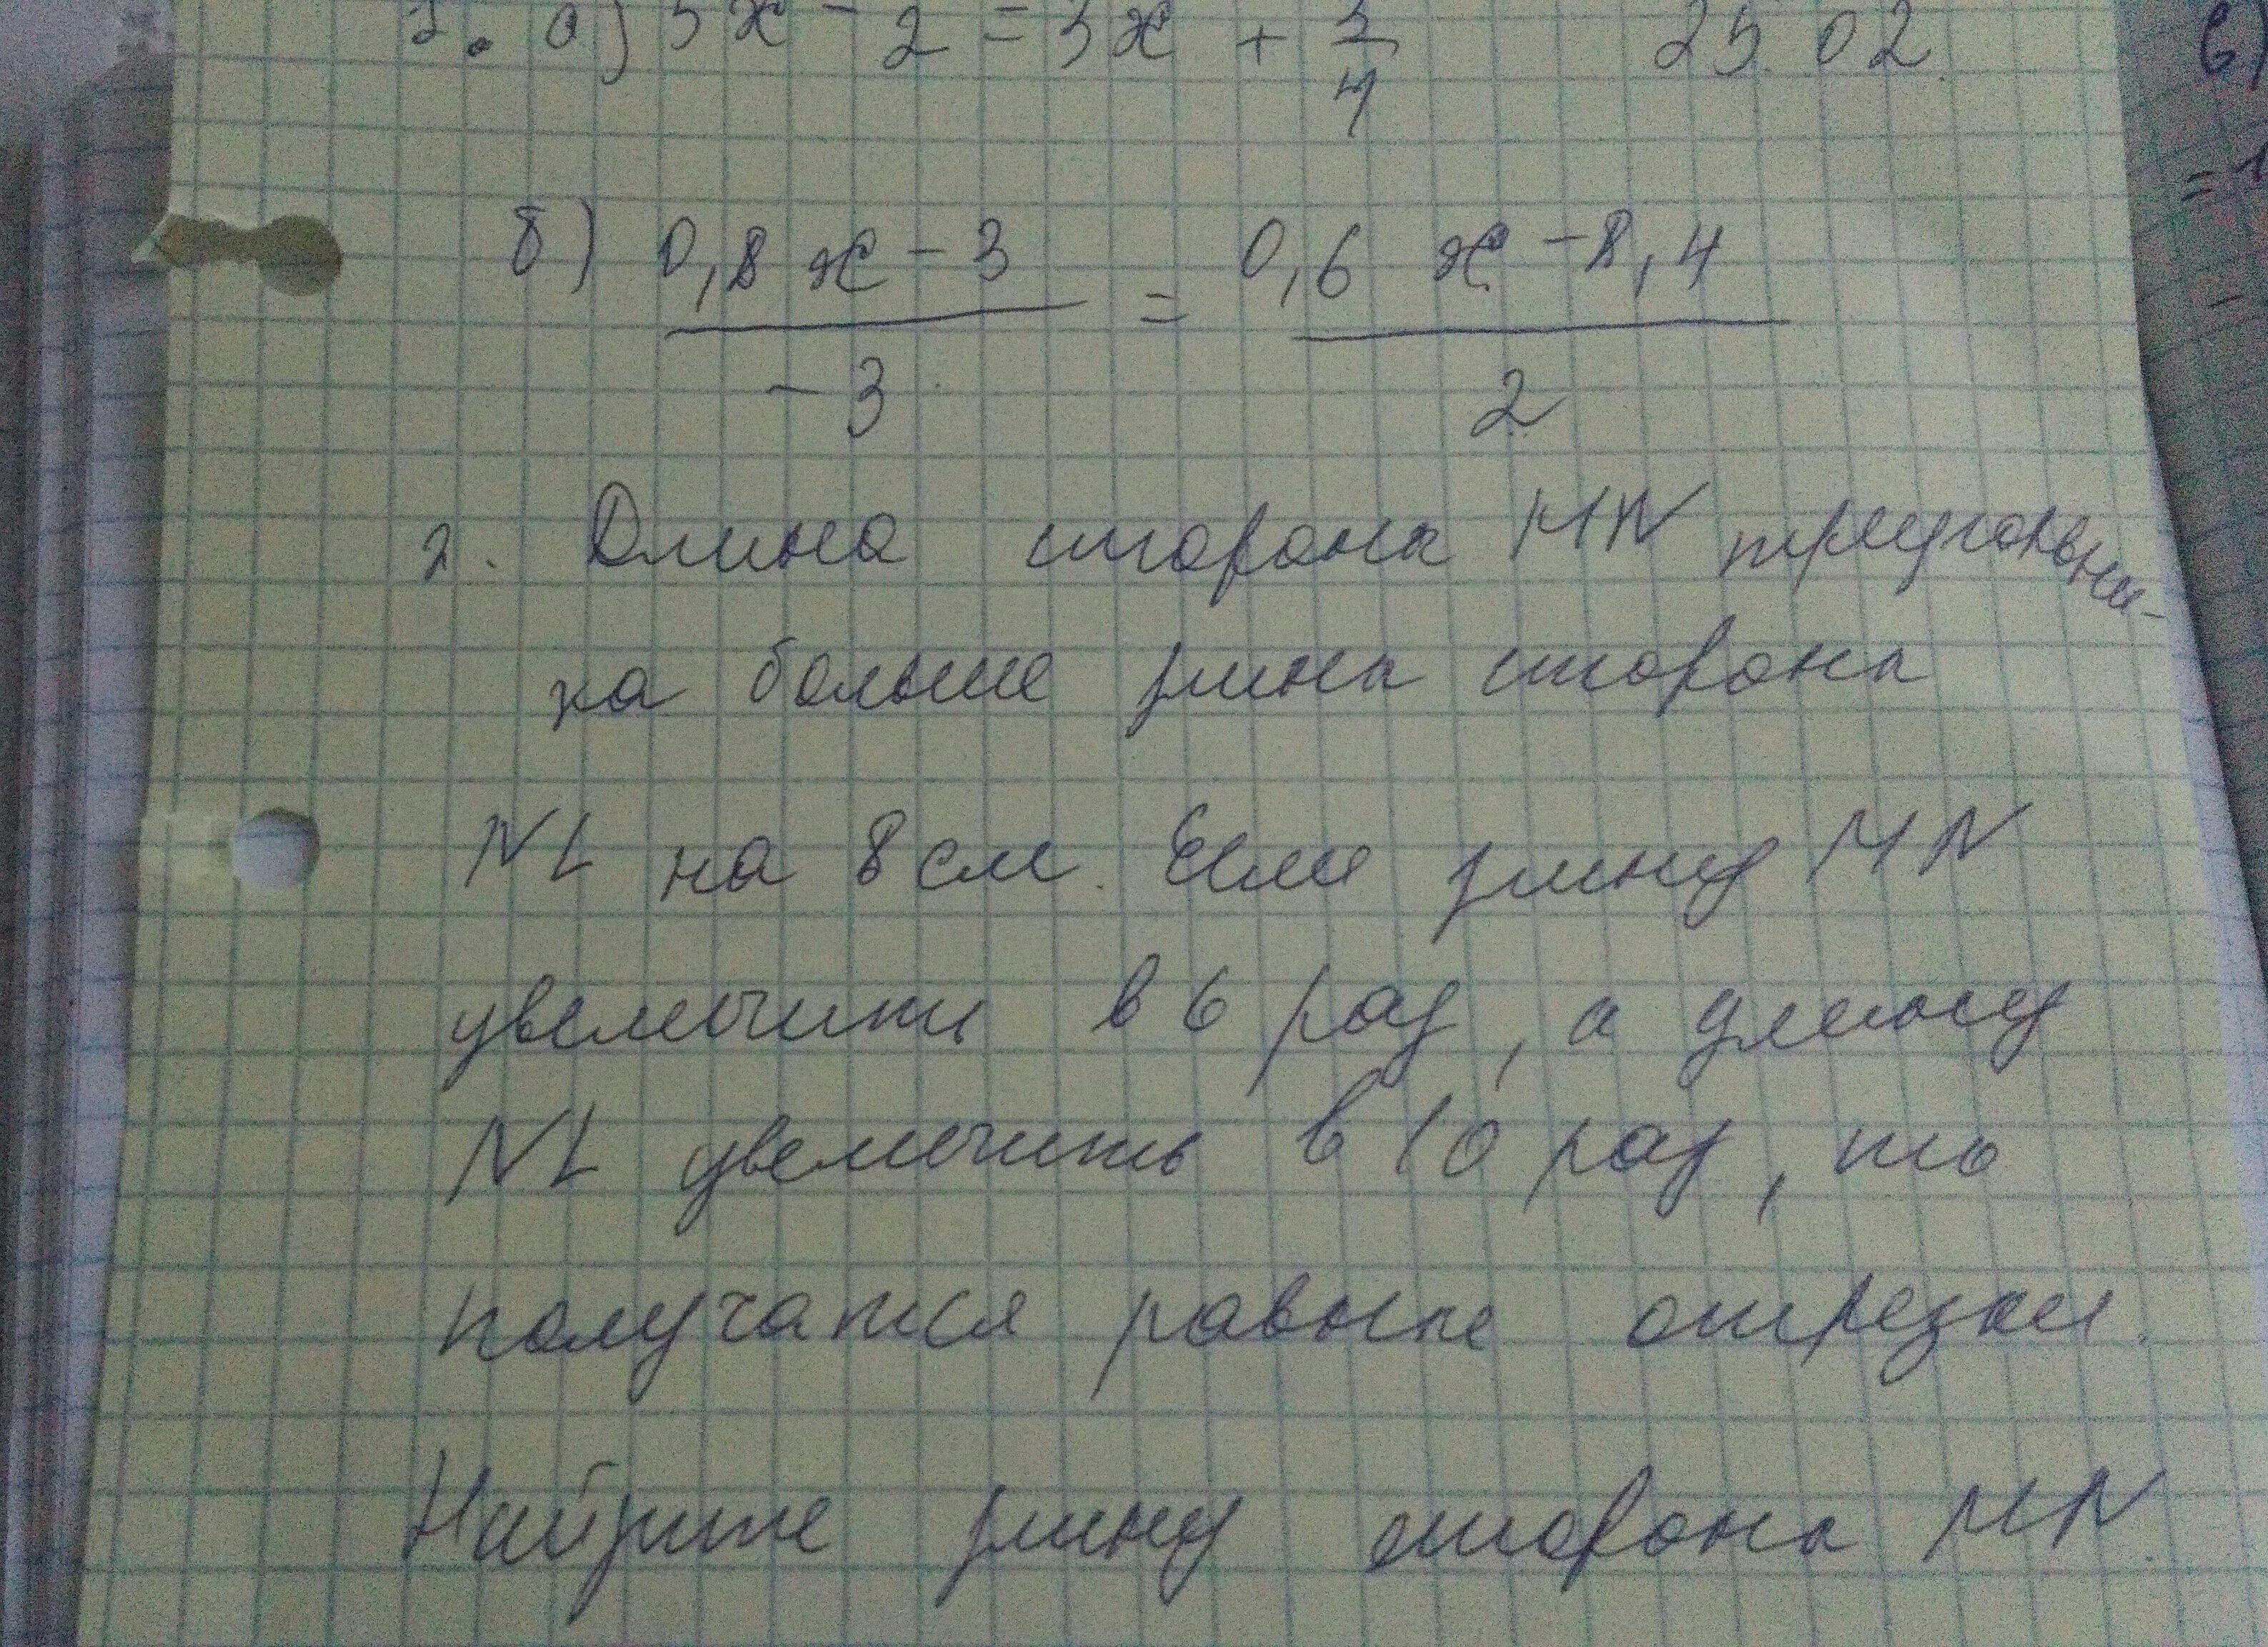 1. а) 5x - 2 = 3x + 3/4 25.02.
б) (0,8x - 3)/(-3) = (0,6x - 8,4)/2
2. Длина стороны MN треугольни-
ка больше длины стороны
NL на 8 см. Если длину MN
увеличить в 6 раз, а длину
NL увеличить в 10 раз, то
получатся равные отрезки.
Найдите длину стороны MN.